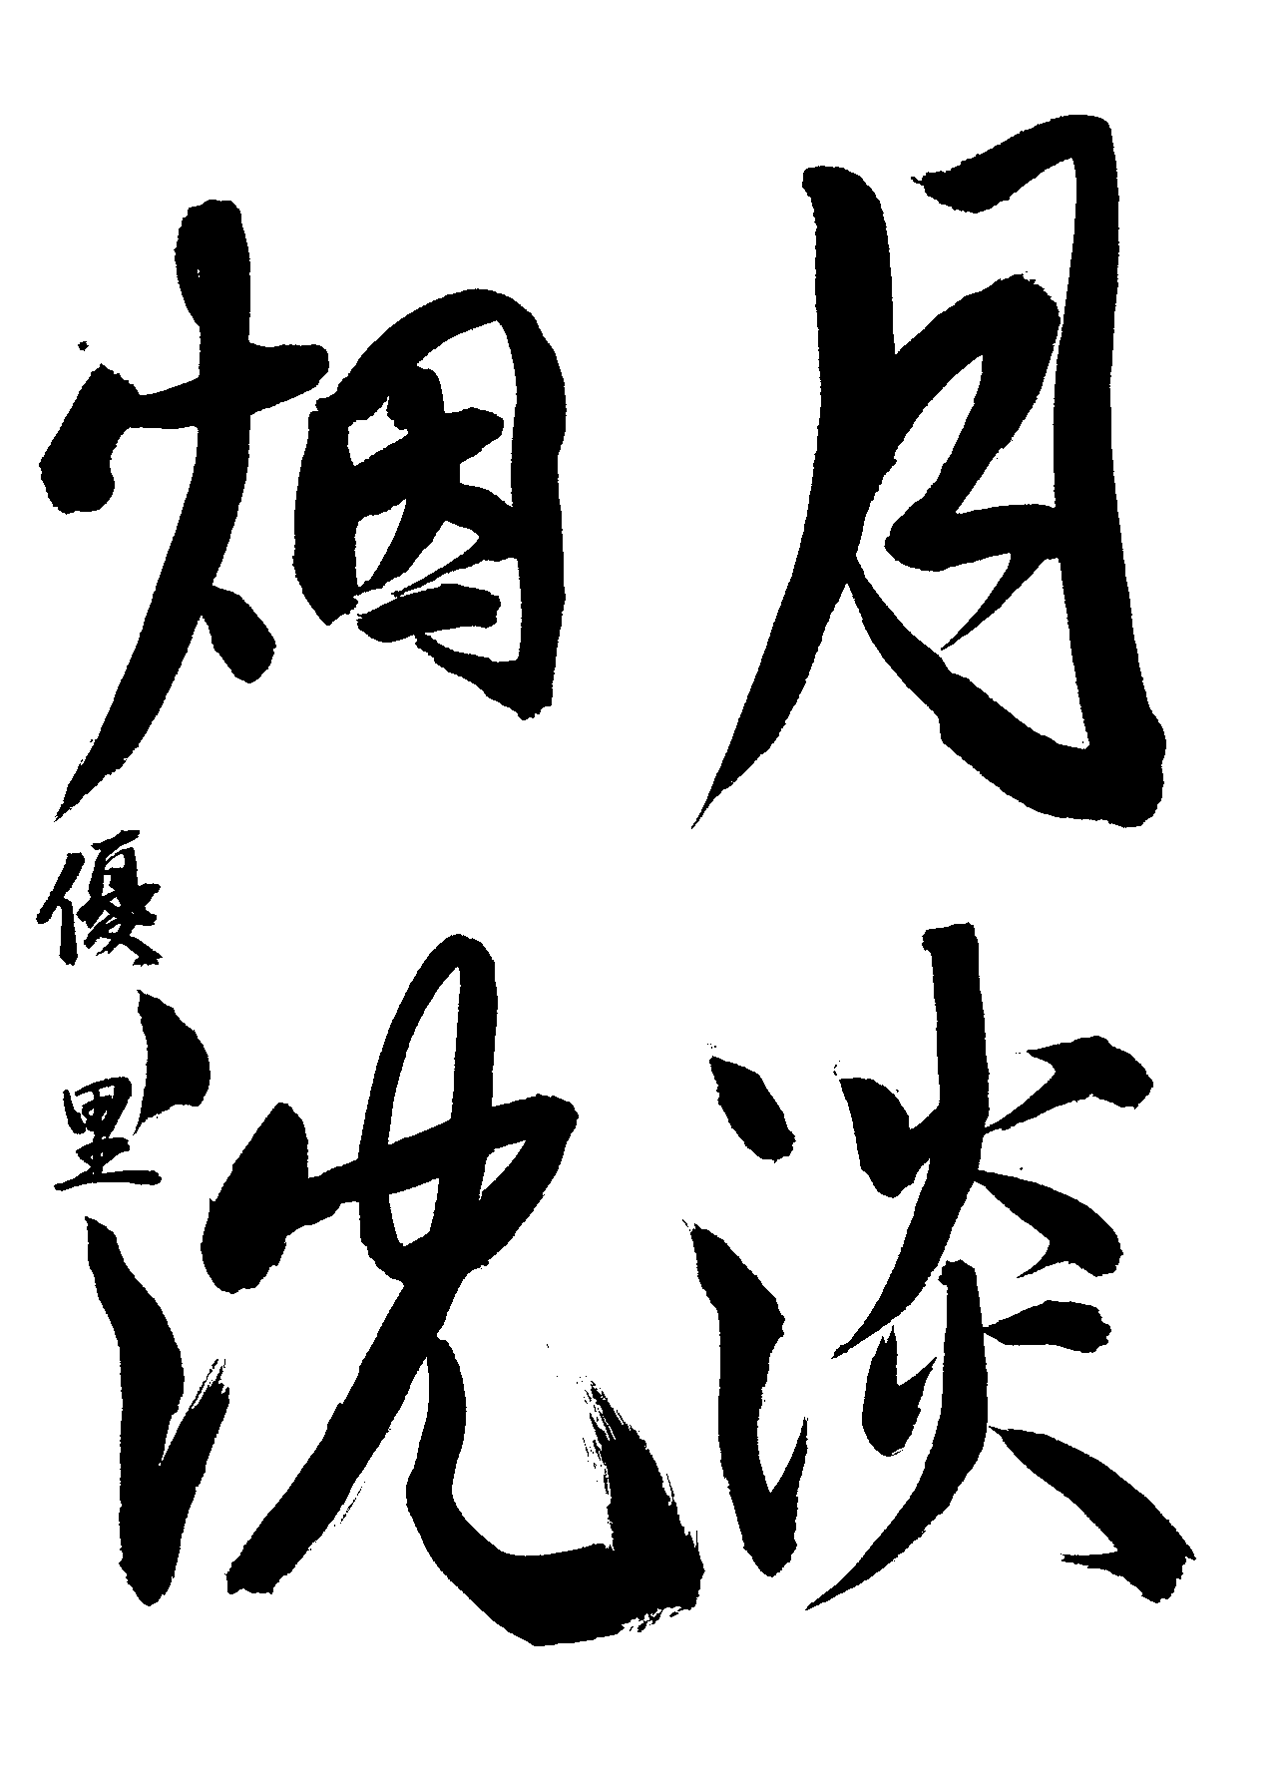 月淡
烟沈
優里